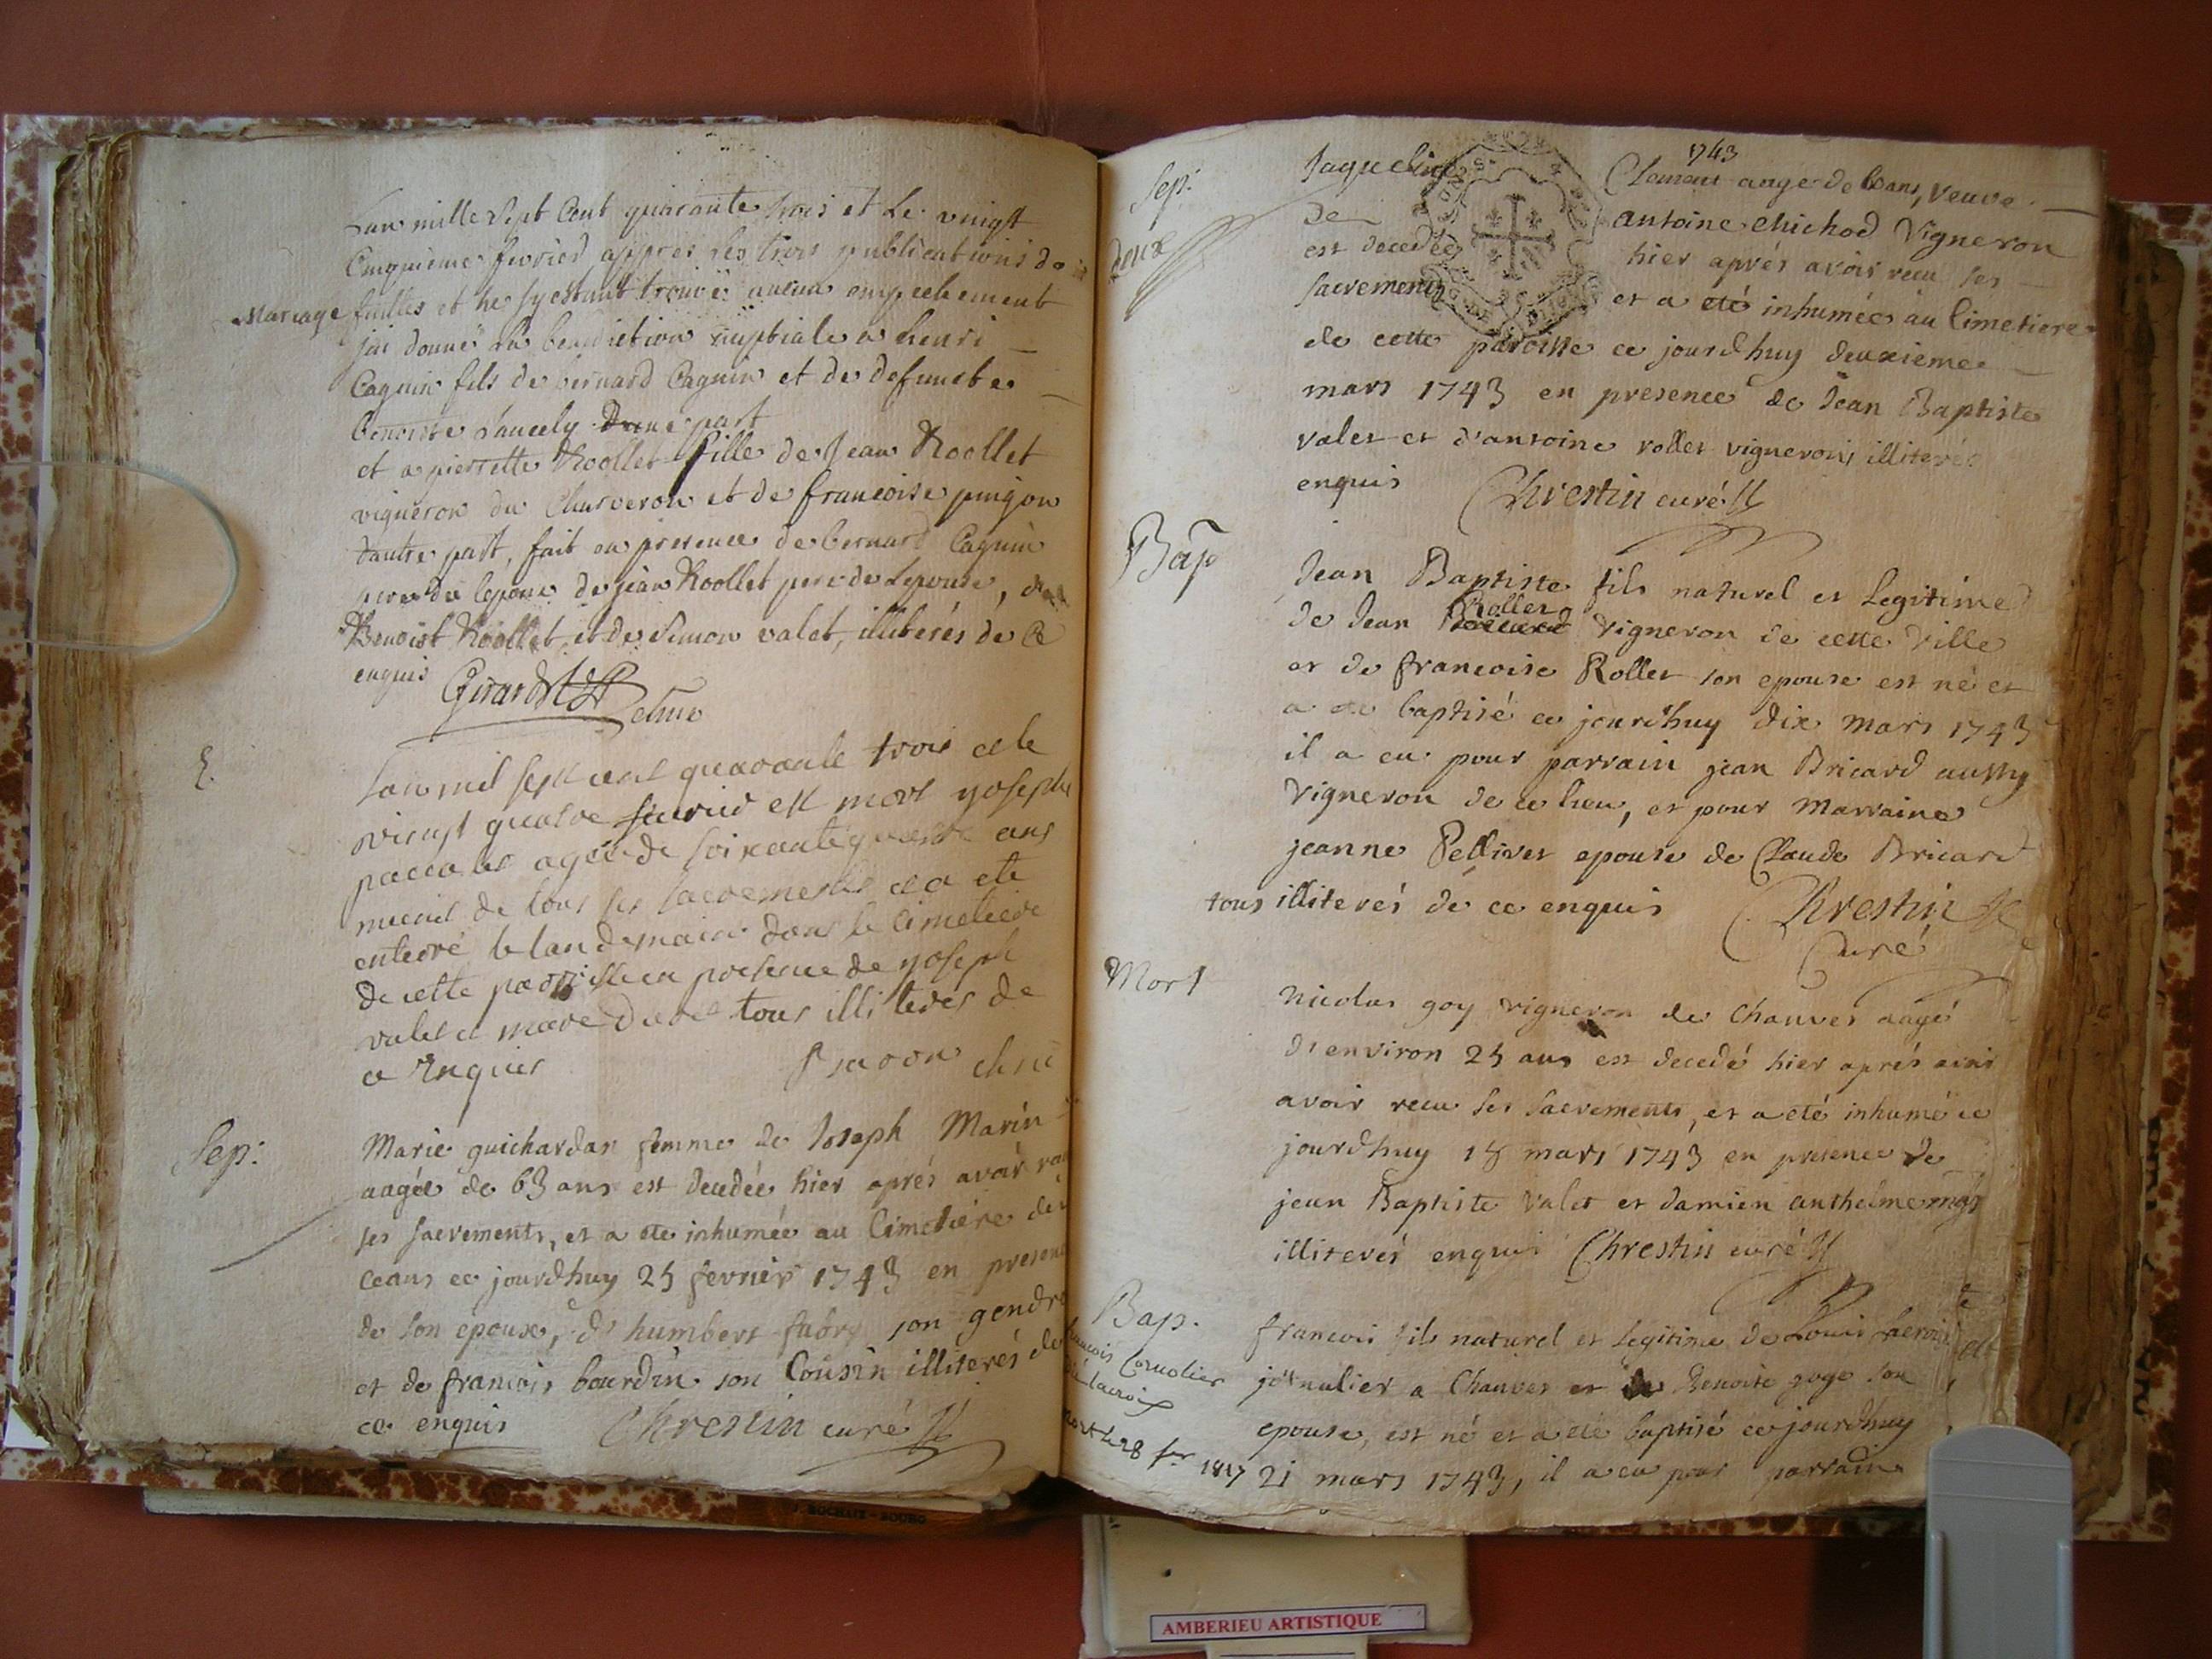 Lan mille sept Cent quarante trois et Le vingt
Cinquieme fevrier appres les trois publications de
Mariage
failles et ne sy estant trouvé aucun empechement
jai donné La benediction nuptiale a henri
Caguin fils de bernard Caguin et de defuncte
benoiste Dune part
et a pierrette Roollet fille de Jean Roollet
vigneron du Charveron et de francoise pingon
dautre part, fait en presence de bernard Caguin
pere de lepoux de jean Roollet pere de Lepouse, de
Benoist Roollet et de Simon valet, illiterés de Ce
enquis Girard
E.
Lan mil sept cent quarante trois et le
vingt quatre fevrier est mort yoseph
agée de soixante quatre ans
de tous ses sacrements et a ete
enterré le landemain dans le cimetiere
de cette paroisse en presence de yoseph
valet et tous illiterés de
a Enquier
Sep:
Marie guichardan femme de Joseph Marin
aagée de 63 ans est decedée hier aprés avoir
ses sacrements, et a ete inhumée au Cimetiere de
ceans ce jourdhuy 25 fevrier 1743 en presence
de son epoux, d humbert fabry son gendre
et de francois bourdin son Cousin illiterés de
ce enquis Chrestin curé
1743
Sep:
Jaqueline Clement aage de ans, veuve
de antoine chichod Vigneron
est decedée hier aprés avoir recu ses
sacrements et a eté inhumée au Cimetiere
de cette paroisse ce jourdhuy deuxieme
mars 1743 en presence de Jean Baptiste
valet et d'antoine rollet vignerons illiterés
enquis Chrestin curé
Bap
Jean Baptiste fils naturel et Legitime
Rollet
de Jean vigneron de cette ville
et de francoise Rollet son epouse est né et
a ete baptisé ce jourd'huy dix mars 1743
il a eu pour parrain jean Bricard aussy
vigneron de ce lieu, et pour Marraine
jeanne Pellivet epouse de Claude Bricard
tous illiterés de ce enquis Chrestin
Curé
Mort
nicolas goy vigneron de Chauves aagé
d'environ 25 ans est decedé hier aprés
avoir recu ses sacrements, et a eté inhumé ce
jourdhuy 18 mars 1743 en presence de
jean Baptiste Valet et damien anthelme
illiterés enquis Chrestin curé
Bap.
francois Cornolier
lacroix
mort le 28 1817
francois fils naturel et legitime de Louis Lacroix
journalier a Chauves et de Benoite goge son
epouse, est né et a eté baptisé ce jourdhuy
21 mars 1743, il a eu pour parrain
ROCHAIX - BOURG
AMBERIEU ARTISTIQUE